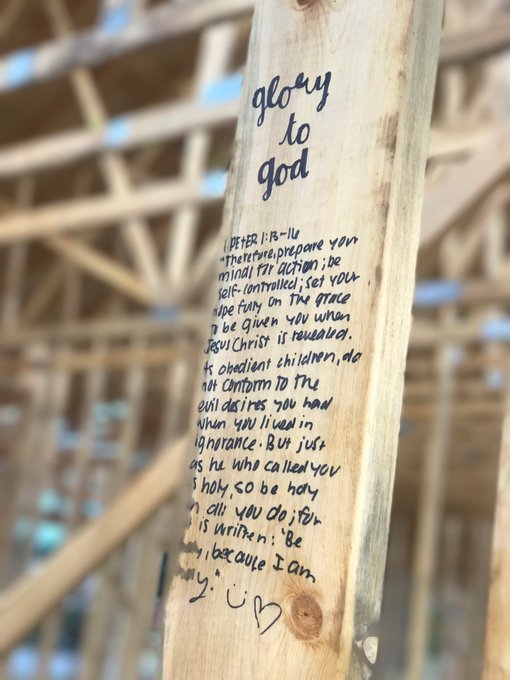 glory
to
god
1 PETER 1:13-16
"Therefore, prepare your
minds for action; be
self-controlled; set your
hope fully on the grace
to be given you when
Jesus Christ is revealed.
As obedient children, do
not conform to the
evil desires you had
when you lived in
ignorance. But just
as he who called you
is holy, so be holy
in all you do; for
is written: 'Be
, because I am
y."